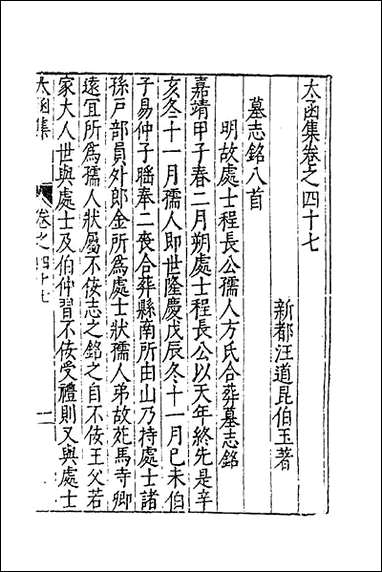 太函集卷之四十七
新都汪道昆伯玉著
墓志銘八首
明故處士程長公孺人方氏合葬墓志銘
嘉靖甲子春二月朔處士程長公以天年終先是辛
亥冬十一月孺人即世隆慶戊辰冬十一月己未伯
子易仲子䁀奉二喪合葬縣南所由山乃持處士諸
孫戶部員外郎金所為處士狀孺人弟故苑馬寺卿
遠宜所為孺人狀屬不佞志之銘之自不佞王父若
家大人世與處士及伯仲習不佞受禮則又與處士
太函集
卷之四十七
一